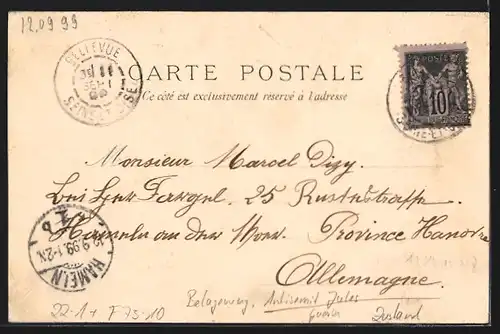 12.09.99
BELLEVUE
11
SEINE-ET-OISE
CARTE POSTALE
Ce côté est exclusivement réservé à l'adresse
POSTES
10
Monsieur Marcel Dizy.
bei Herr 25
Hameln an der Weser. Province Hanovre
Allemagne.
HAMELN
12.9.99.1-2N.
22-1+ F 73-10
Antisemit Jules
Guérin